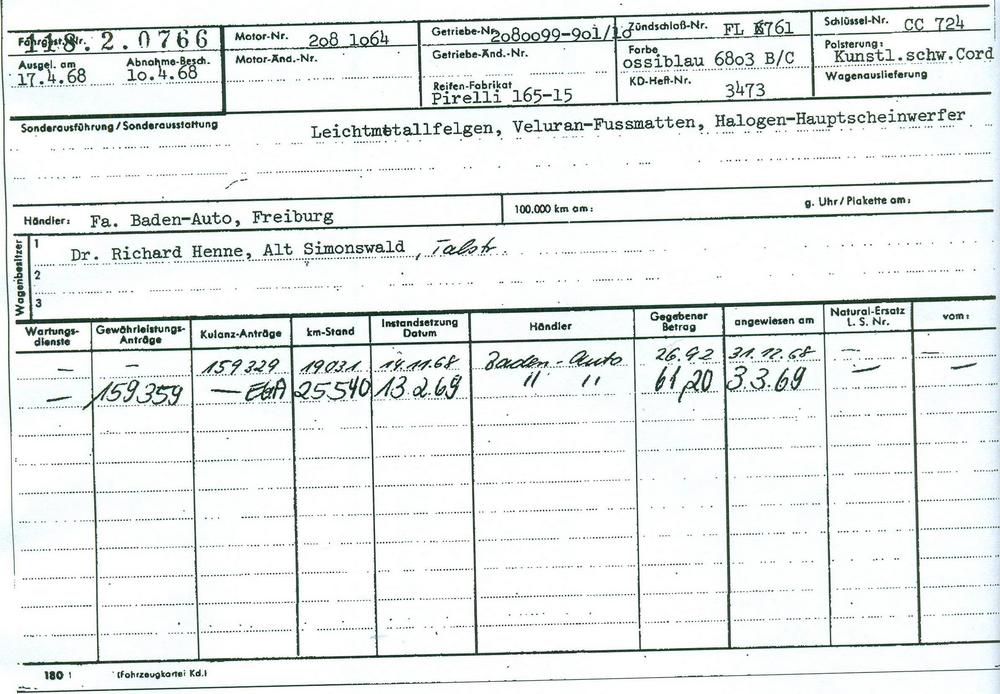 Fahrgest.-Nr. 118.2.0766
Motor-Nr. 208 1064
Getriebe-Nr. 2080099-901/10
Zündschloß-Nr. FL 761
Schlüssel-Nr. CC 724
Ausgel. am 17.4.68
Abnahme-Besch. 10.4.68
Motor-Änd.-Nr.
Getriebe-Änd.-Nr.
Farbe ossiblau 6803 B/C
Polsterung: Kunstl.schw.Cord
Reifen-Fabrikat Pirelli 165-15
KD-Heft-Nr. 3473
Wagenauslieferung
Sonderausführung/Sonderausstattung Leichtmetallfelgen, Veluran-Fussmatten, Halogen-Hauptscheinwerfer
Händler: Fa. Baden-Auto, Freiburg
100.000 km am:
g. Uhr/Plakette am:
Wagenbesitzer
1 Dr. Richard Henne, Alt Simonswald, Talstr.
2
3
Wartungs-dienste Gewährleistungs-Anträge Kulanz-Anträge km-Stand Instandsetzung Datum Händler Gegebener Betrag angewiesen am Natural-Ersatz L. S. Nr. vom:
— — 159329 19031 14.11.68 Baden-Auto 26.92 31.12.68 — —
— 159359 — 25540 13.2.69 " " 61,20 3.3.69 — —
180 (Fahrzeugkartei Kd.)